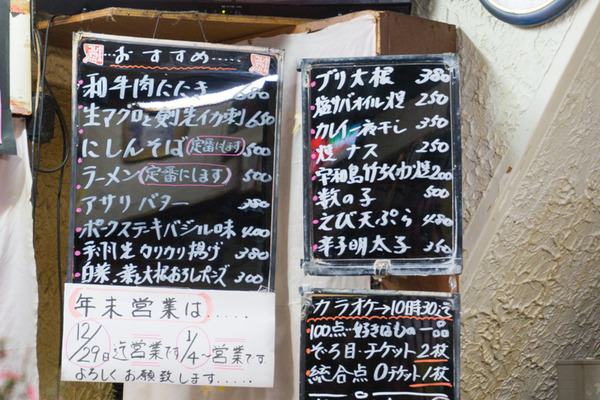 おすすめ
和牛肉たたき 680
生マグロと剣先イカ刺 650
にしんそば(定番にします) 500
ラーメン(定番にします) 500
アサリバター 380
ポークステーキバジル味 400
手羽先カリカリ揚げ 380
白菜・葉と大根おろしポンズ 300
年末営業は.....
12/29日迄営業です 1/4〜営業です
よろしくお願い致します.....
ブリ大根 380
塩サバオイル煙 250
カレイ一夜干し 350
焼ナス 250
宇和島竹ちくわ焼 200
数の子 500
えび天ぷら 480
辛子明太子 350
カラオケ→10時30迄
100点・好きなもの一品
ぞろ目・チケット2枚
総合点0チケット1枚